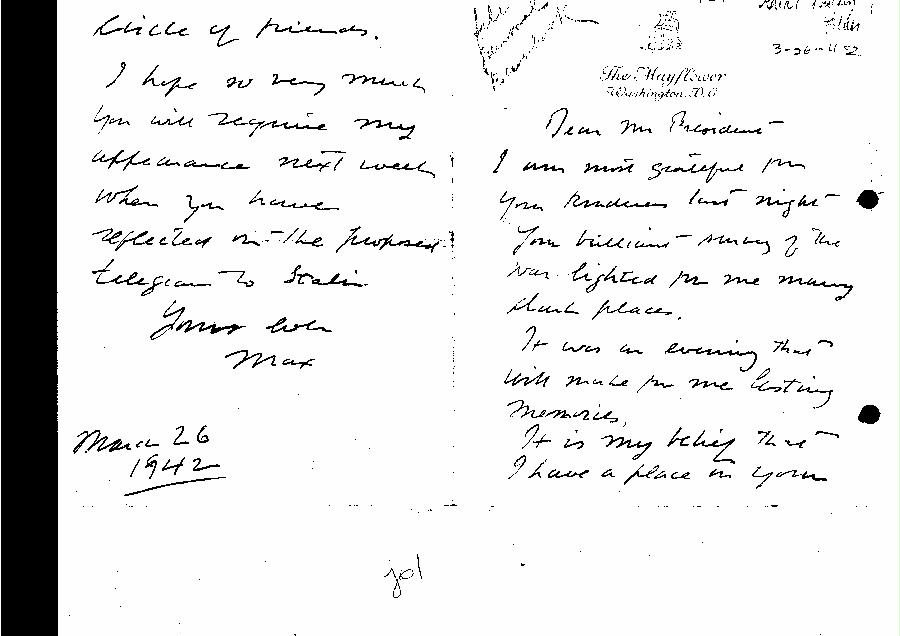 file
Personal
3-26-42
The Mayflower
Washington, D.C.
Dear Mr President
I am most grateful for
your kindness last night
Your brilliant survey of the
war lighted for me many
dark places.
It was an evening that
will make for me lasting
memories.
It is my belief that
I have a place in your
circle of friends.
I hope so very much
you will require my
appearance next week
when you have
reflected on the proposed
telegram to Stalin
Yours ever
Max
March 26
1942